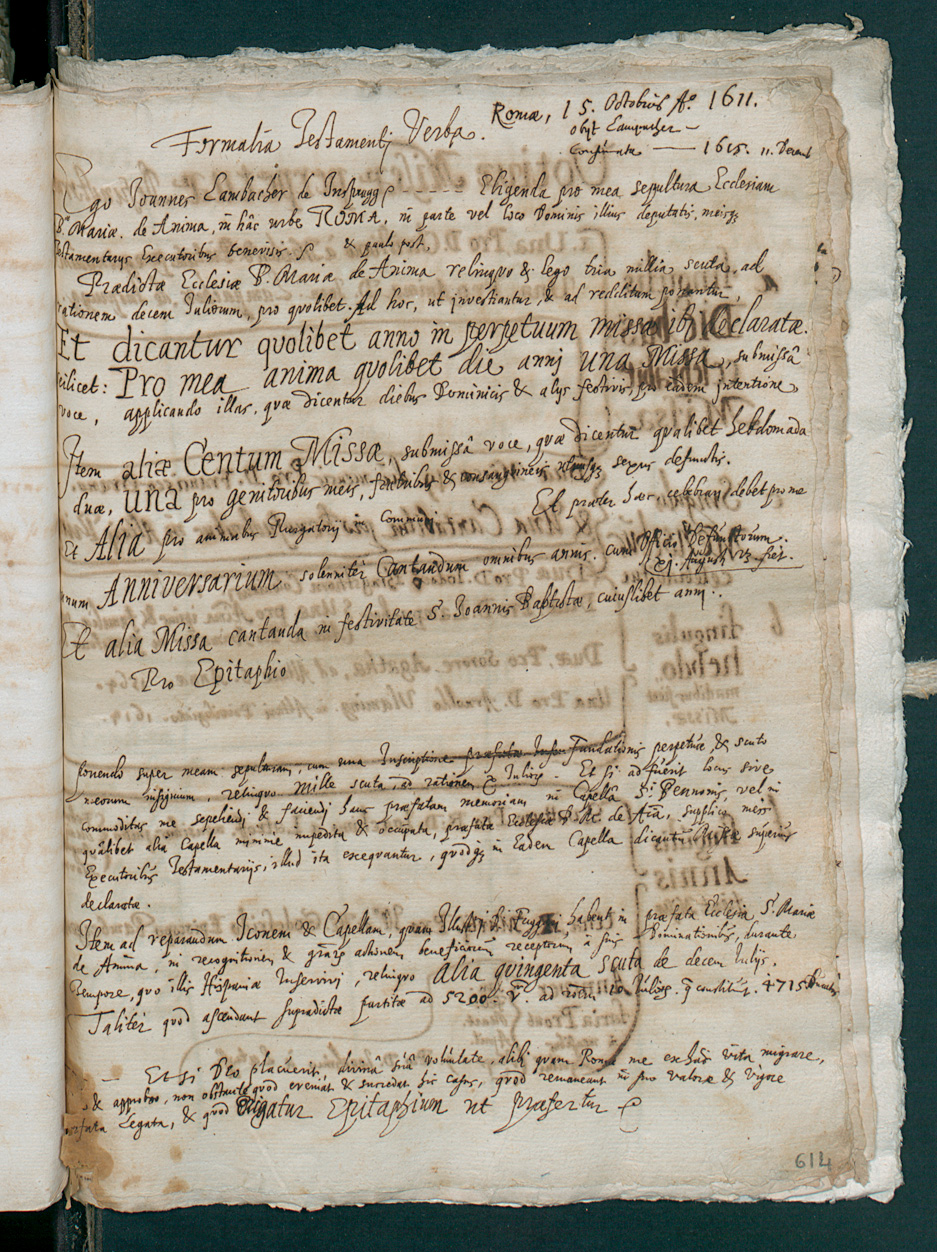 Romæ, 15. Octobris Aº. 1611.
obijt Lambacher —
Formalia Testamenti Verba.
— 1615. 11. Decemb
Ego Ioannes Lambacher de Insprugg - - - - - Eligenda pro mea sepultura Ecclesiam
B. Mariæ. de Anima, in hâc urbe ROMA, in parte vel loco Dominis illius deputatis, meisqȝ
Testamentarijs Executoribus benevisis. & paulo post,
Prædictæ Ecclesiæ B. Mariæ de Anima relinquo & lego tria millia scuta, ad
rationem decem Iuliorum, pro quolibet. Ad hoc, ut investiantur, & ad redditum ponantur,
Et dicantur quolibet anno in perpetuum missæ declaratæ.
scilicet: Pro mea anima quolibet die anni una Missa, submissâ
voce, applicando illas, quæ dicentur diebus Dominicis & alijs festivis, pro eadem intentione
Item aliæ Centum Missæ, submissâ voce, quæ dicentur qualibet hebdomada
duæ, una pro genitoribus meis, fratribus & consanguineis utriusqȝ sexus defunctis.
Et Alia pro animabus Purgatorij in communi. Et præter hæc, celebrari debet pro me
unum Anniversarium solenniter Cantandum omnibus annis. cum Officio Defunctorum.
August 23 fiet.
Et alia Missa cantanda in festivitate S. Ioannis Baptistæ, cuiuslibet anni.
Pro Epitaphio
ponendo super meam sepulturam, cum una Inscriptione præfatæ Fundationis perpetuæ & scuto
meorum insignium, relinquo mille scuta, ad rationem Et si adfuerit locus sive
commoditas me sepeliendi & faciendi hanc præfatam memoriam in Capella S. Bennonis, vel in
qualibet alia Capella minimè impedita & occupata, præfatæ Ecclesiæ B. M. de Aīa, supplico meis
Executoribus Testamentarijs, illud ita exequantur, quodqȝ in Eadem Capella dicantur Missæ superius
declaratæ.
Item ad reparandum Iconem & Capellam, quam habent in præfata Ecclesia S. Mariæ
de Anima, in recognitionem & beneficiorum receptorum à suis Dominationibus, durante
Tempore, quo illis Hispaniæ Inservivi, relinquo alia quingenta scuta de decem Iulijs.
Taliter quod ascendant supradictæ partitæ ad 5200. ad 10 4715
— Et si Deo placuerit, divinâ suâ voluntate, alibi quam Romæ me ex hac vita migrare,
& approbo, non obstante quod eveniat & succedat hic casus, quod remaneant in suo valore & vigore
Legata, & quod erigatur Epitaphium ut præfertur
614